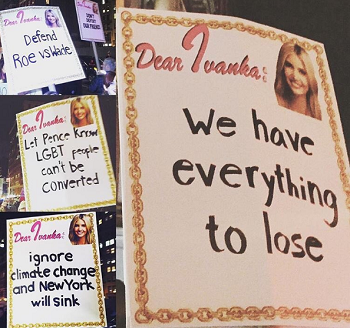 Dear Ivanka:
Defend
Roe vs Wade
DON'T
DEPORT
OUR FRIENDS
Dear Ivanka:
Let Pence Know
LGBT people
can't be
converted
Dear Ivanka:
ignore
climate change
and New York
will sink
Dear Ivanka:
we have
everything
to lose